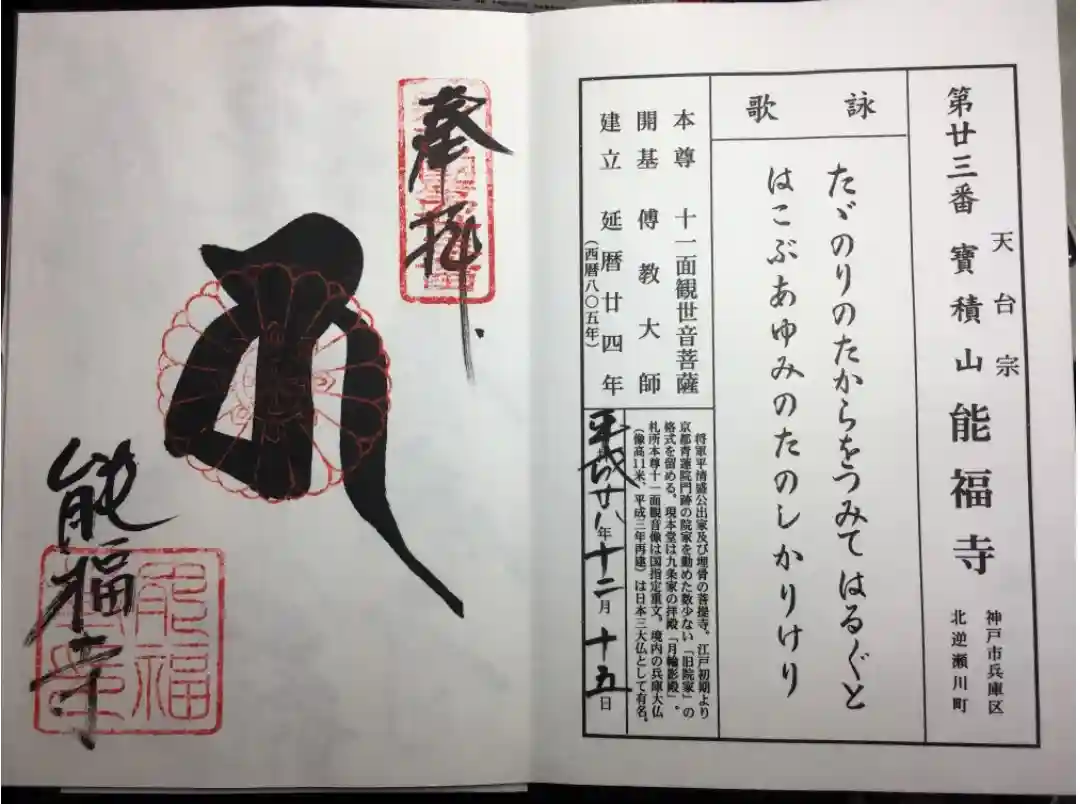 第廿三番 寶積山 能福寺
天台宗
神戸市兵庫区
北逆瀬川町
詠歌
たゞのりのたからをつみてはるぐと
はこぶあゆみのたのしかりけり
本尊 十一面観世音菩薩
開基 傳教大師
建立 延暦廿四年
(西暦八〇五年)
将軍平清盛公出家及び埋骨の菩提寺。江戸初期より
京都青蓮院門跡の院家を勤めた数少ない「旧院家」の
格式を留める。現本堂は九条家の拝殿「月輪影殿」。
札所本尊十一面観音像は国指定重文。境内の兵庫大仏
(像高11米、平成三年再建)は日本三大仏として有名。
平成廿八年十二月十五日
奉拝
能福寺
能福